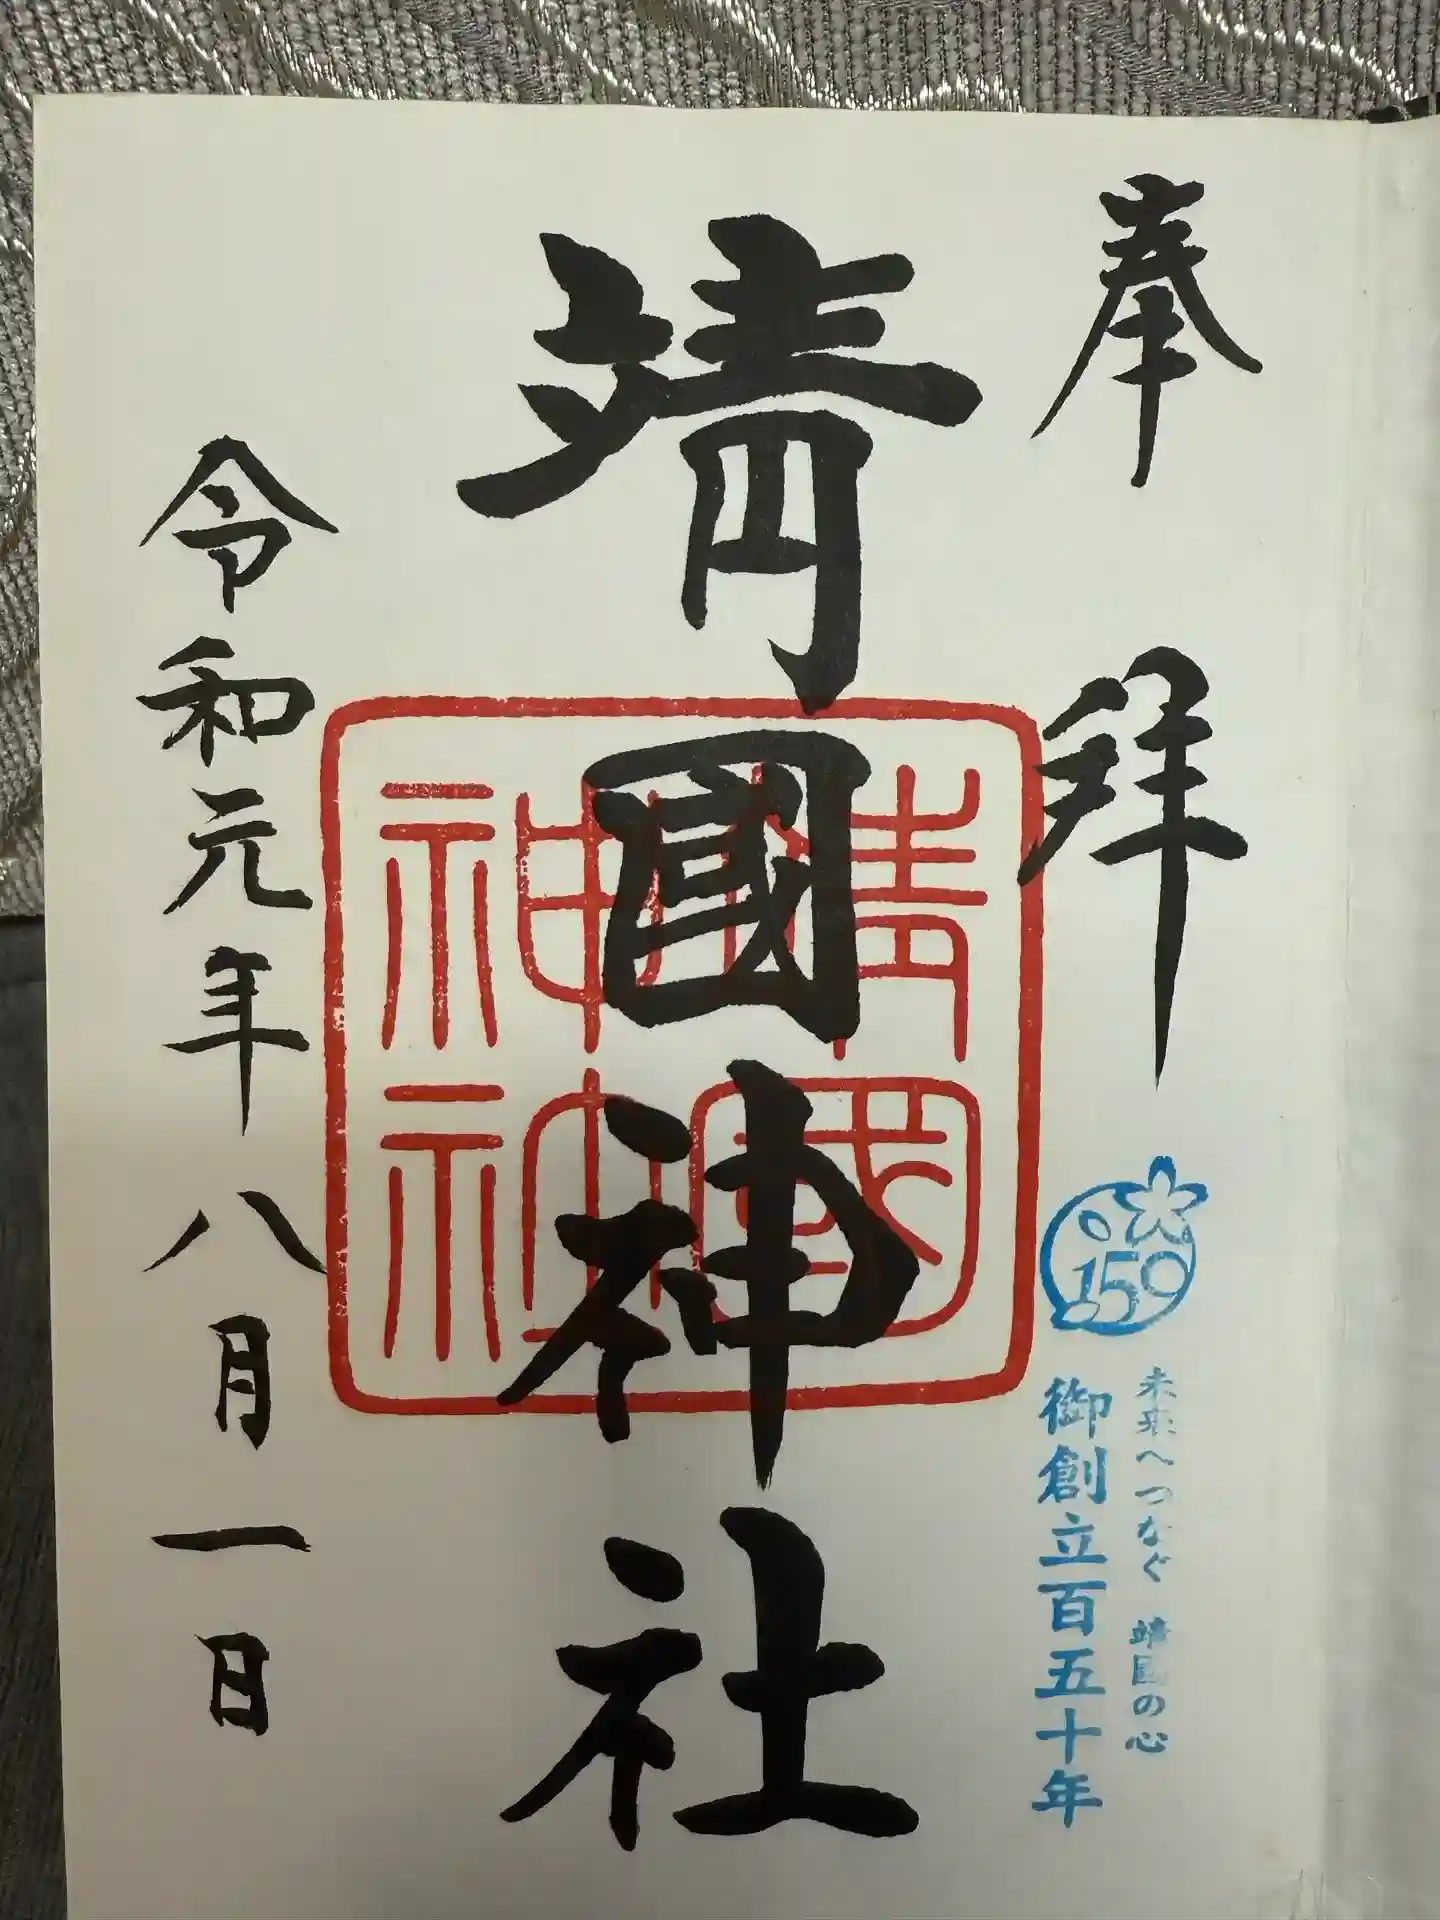 奉拝
150
未来へつなぐ 靖國の心
御創立百五十年
靖國神社
靖國神社
令和元年八月一日